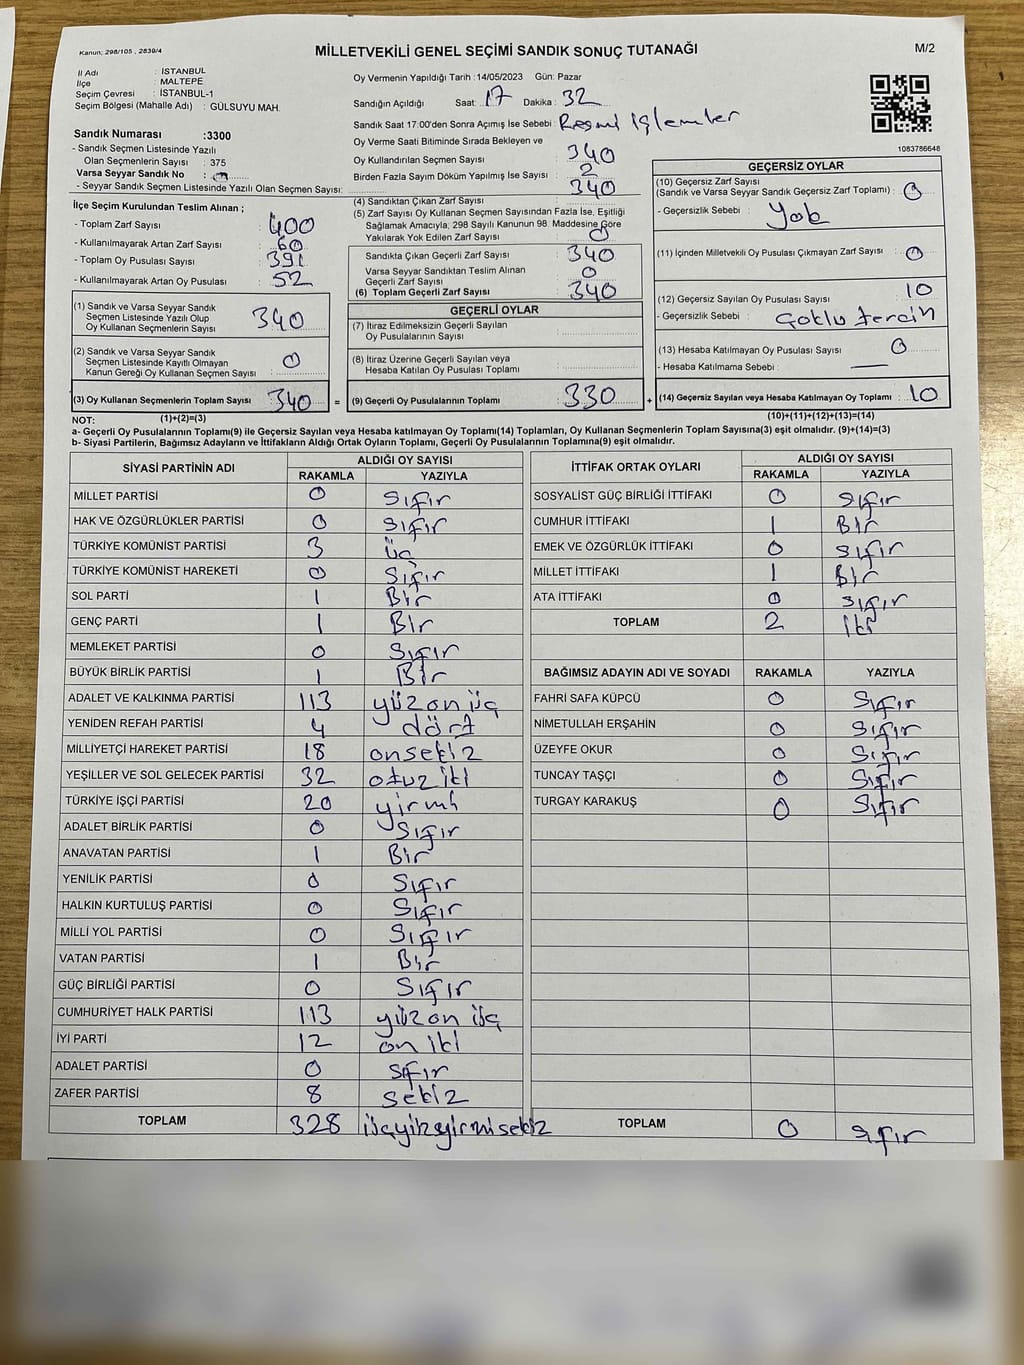 Kanun; 298/105 , 2839/4
MİLLETVEKİLİ GENEL SEÇİMİ SANDIK SONUÇ TUTANAĞI
M/2
İl Adı : İSTANBUL
İlçe : MALTEPE
Seçim Çevresi : İSTANBUL-1
Seçim Bölgesi (Mahalle Adı) : GÜLSUYU MAH.
Sandık Numarası :3300
- Sandık Seçmen Listesinde Yazılı
Olan Seçmenlerin Sayısı : 375
Varsa Seyyar Sandık No : 0
- Seyyar Sandık Seçmen Listesinde Yazılı Olan Seçmen Sayısı:
Oy Vermenin Yapıldığı Tarih :14/05/2023 Gün: Pazar
Sandığın Açıldığı Saat: 17 Dakika : 32
Sandık Saat 17:00'den Sonra Açımış İse Sebebi : Resmi işlemler
Oy Verme Saati Bitiminde Sırada Bekleyen ve
Oy Kullandırılan Seçmen Sayısı : 340
Birden Fazla Sayım Döküm Yapılmış İse Sayısı : 2
1083786648
İlçe Seçim Kurulundan Teslim Alınan ;
- Toplam Zarf Sayısı : 400
- Kullanılmayarak Artan Zarf Sayısı : 60
- Toplam Oy Pusulası Sayısı : 391
- Kullanılmayarak Artan Oy Pusulası : 52
(1) Sandık ve Varsa Seyyar Sandık
Seçmen Listesinde Yazılı Olup
Oy Kullanan Seçmenlerin Sayısı : 340
(2) Sandık ve Varsa Seyyar Sandık
Seçmen Listesinde Kayıtlı Olmayan
Kanun Gereği Oy Kullanan Seçmen Sayısı : 0
(3) Oy Kullanan Seçmenlerin Toplam Sayısı : 340 =
(4) Sandıktan Çıkan Zarf Sayısı : 340
(5) Zarf Sayısı Oy Kullanan Seçmen Sayısından Fazla İse, Eşitliği
Sağlamak Amacıyla; 298 Sayılı Kanunun 98. Maddesine Göre
Yakılarak Yok Edilen Zarf Sayısı : 0
Sandıkta Çıkan Geçerli Zarf Sayısı : 340
Varsa Seyyar Sandıktan Teslim Alınan
Geçerli Zarf Sayısı : 0
(6) Toplam Geçerli Zarf Sayısı : 340
GEÇERLİ OYLAR
(7) İtiraz Edilmeksizin Geçerli Sayılan
Oy Pusulalarının Sayısı :
(8) İtiraz Üzerine Geçerli Sayılan veya
Hesaba Katılan Oy Pusulası Toplamı :
(9) Geçerli Oy Pusulalarının Toplamı : 330 +
GEÇERSİZ OYLAR
(10) Geçersiz Zarf Sayısı
(Sandık ve Varsa Seyyar Sandık Geçersiz Zarf Toplamı) : 0
- Geçersizlik Sebebi : Yok
(11) İçinden Milletvekili Oy Pusulası Çıkmayan Zarf Sayısı : 0
(12) Geçersiz Sayılan Oy Pusulası Sayısı : 10
- Geçersizlik Sebebi : Çoklu tercih
(13) Hesaba Katılmayan Oy Pusulası Sayısı : 0
- Hesaba Katılmama Sebebi : —
(14) Geçersiz Sayılan veya Hesaba Katılmayan Oy Toplamı : 10
NOT: (1)+(2)=(3) (10)+(11)+(12)+(13)=(14)
a- Geçerli Oy Pusulalarının Toplamı(9) ile Geçersiz Sayılan veya Hesaba katılmayan Oy Toplamı(14) Toplamları, Oy Kullanan Seçmenlerin Toplam Sayısına(3) eşit olmalıdır. (9)+(14)=(3)
b- Siyasi Partilerin, Bağımsız Adayların ve İttifakların Aldığı Ortak Oyların Toplamı, Geçerli Oy Pusulalarının Toplamına(9) eşit olmalıdır.
SİYASİ PARTİNİN ADI ALDIĞI OY SAYISI
RAKAMLA YAZIYLA
MİLLET PARTİSİ 0 sıfır
HAK VE ÖZGÜRLÜKLER PARTİSİ 0 sıfır
TÜRKİYE KOMÜNİST PARTİSİ 3 üç
TÜRKİYE KOMÜNİST HAREKETİ 0 Sıfır
SOL PARTİ 1 Bir
GENÇ PARTİ 1 Bir
MEMLEKET PARTİSİ 0 Sıfır
BÜYÜK BİRLİK PARTİSİ 1 Bir
ADALET VE KALKINMA PARTİSİ 113 yüz on üç
YENİDEN REFAH PARTİSİ 4 dört
MİLLİYETÇİ HAREKET PARTİSİ 18 onsekiz
YEŞİLLER VE SOL GELECEK PARTİSİ 32 otuz iki
TÜRKİYE İŞÇİ PARTİSİ 20 yirmi
ADALET BİRLİK PARTİSİ 0 Sıfır
ANAVATAN PARTİSİ 1 Bir
YENİLİK PARTİSİ 0 Sıfır
HALKIN KURTULUŞ PARTİSİ 0 Sıfır
MİLLİ YOL PARTİSİ 0 Sıfır
VATAN PARTİSİ 1 Bir
GÜÇ BİRLİĞİ PARTİSİ 0 Sıfır
CUMHURİYET HALK PARTİSİ 113 yüz on üç
İYİ PARTİ 12 on iki
ADALET PARTİSİ 0 sıfır
ZAFER PARTİSİ 8 sekiz
TOPLAM 328 üçyüzyirmisekiz
İTTİFAK ORTAK OYLARI ALDIĞI OY SAYISI
RAKAMLA YAZIYLA
SOSYALİST GÜÇ BİRLİĞİ İTTİFAKI 0 sıfır
CUMHUR İTTİFAKI 1 Bir
EMEK VE ÖZGÜRLÜK İTTİFAKI 0 sıfır
MİLLET İTTİFAKI 1 Bir
ATA İTTİFAKI 0 sıfır
TOPLAM 2 iki
BAĞIMSIZ ADAYIN ADI VE SOYADI RAKAMLA YAZIYLA
FAHRİ SAFA KÜPCÜ 0 Sıfır
NİMETULLAH ERŞAHİN 0 Sıfır
ÜZEYFE OKUR 0 Sıfır
TUNCAY TAŞÇI 0 Sıfır
TURGAY KARAKUŞ 0 Sıfır
TOPLAM 0 sıfır